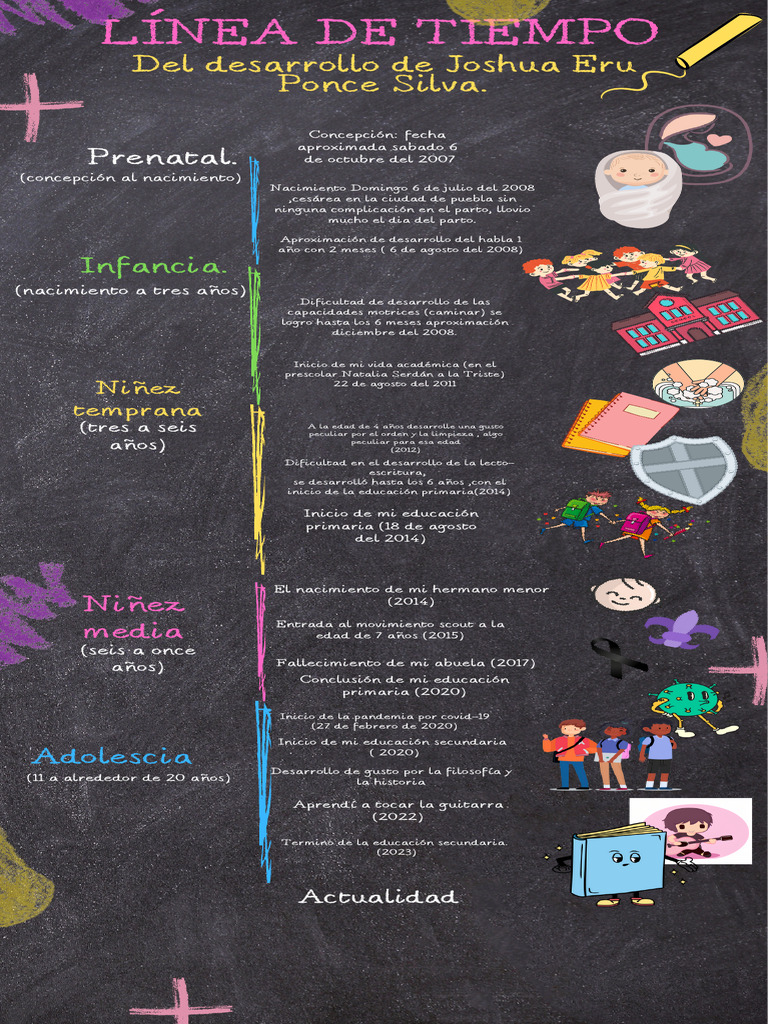 LÍNEA DE TIEMPO
Del desarrollo de Joshua Eru
Ponce Silva.
Prenatal.
(concepción al nacimiento)
Concepción: fecha
aproximada sabado 6
de octubre del 2007
Nacimiento Domingo 6 de julio del 2008
,cesárea en la ciudad de puebla sin
ninguna complicación en el parto, llovio
mucho el dia del parto.
Aproximación de desarrollo del habla 1
año con 2 meses ( 6 de agosto del 2008)
Infancia.
(nacimiento a tres años)
Dificultad de desarrollo de las
capacidades motrices (caminar) se
logro hasta los 6 meses aproximación
diciembre del 2008.
Inicio de mi vida académica (en el
prescolar Natalia Serdán a la Triste)
22 de agosto del 2011
Niñez
temprana
(tres a seis
años)
A la edad de 4 años desarrolle una gusto
peculiar por el orden y la limpieza , algo
peculiar para esa edad
(2012)
Dificultad en el desarrollo de la lecto-
escritura,
se desarrolló hasta los 6 años ,con el
inicio de la educación primaria(2014)
Inicio de mi educación
primaria (18 de agosto
del 2014)
Niñez
media
(seis a once
años)
El nacimiento de mi hermano menor
(2014)
Entrada al movimiento scout a la
edad de 7 años (2015)
Fallecimiento de mi abuela (2017)
Conclusión de mi educación
primaria (2020)
Adolescia
(11 a alrededor de 20 años)
Inicio de la pandemia por covid-19
(27 de febrero de 2020)
Inicio de mi educación secundaria
( 2020)
Desarrollo de gusto por la filosofía y
la historia
Aprendí a tocar la guitarra
(2022)
Termino de la educación secundaria.
(2023)
Actualidad